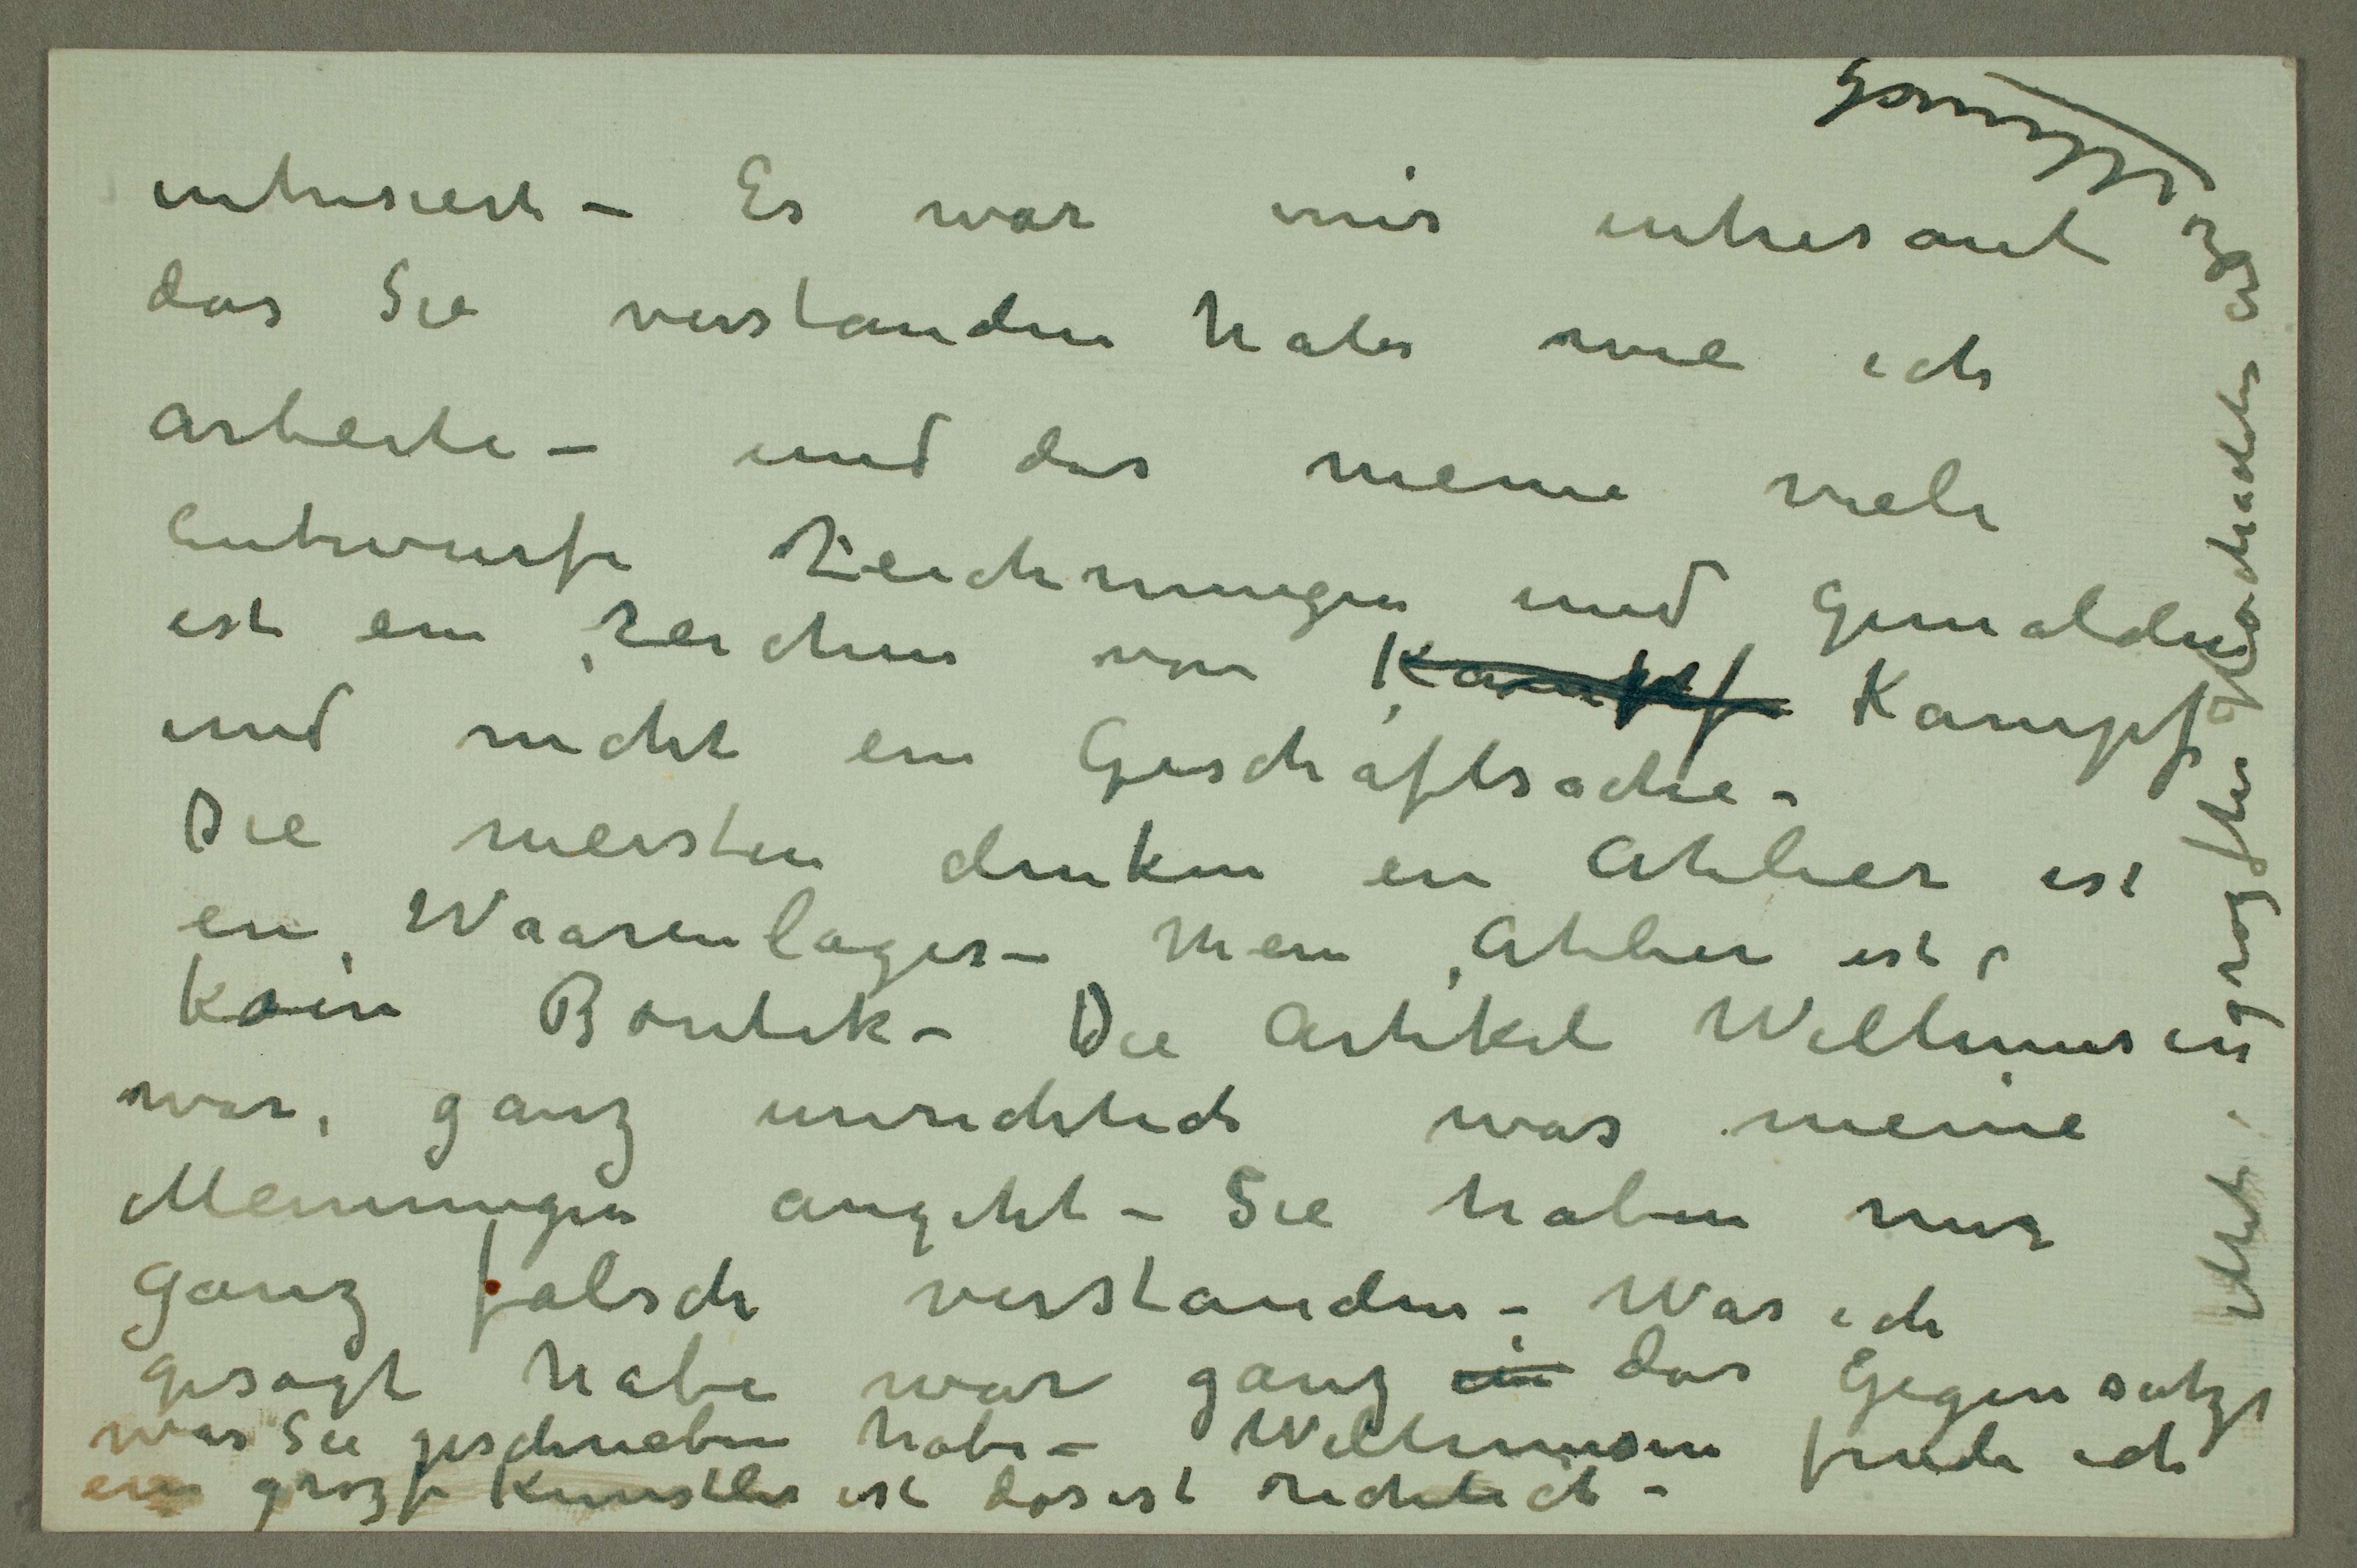 intresiert – Es war mir intresant
das Sie verstanden haben wie ich
arbeite – und das meine viele
Entwurfe Zeichnungen und Gemalden
ist ein Zeichen von Kampfe Kampf
und nicht ein Geschäftsache –
Die meisten denken ein Atelier ist
ein Waarenlager – Mein Atelier ist
kein Boutik – Die Artikel Willumsen
war ganz unrichtich was meine
Meinungen angeht – Sie haben mir
ganz falsch verstanden – Was ich
gesagt habe war ganz ein das Gegensatze
was Sie geschrieben habe – Willumsen finde ich
ein grozse Kunstler ist das ist richtich –
Mit grozsten Hochachten